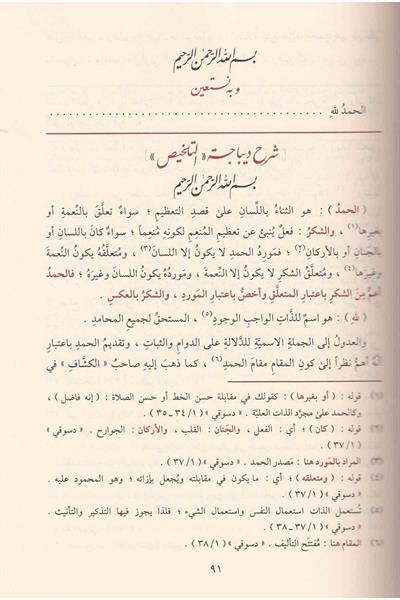 بسم الله الرحمن الرحيم
وبه نستعين
الحمدُ للهِ ........................................
[شرح ديباجة «التلخيص»]
بسم الله الرحمن الرحيم
( الحمدُ ) : هو الثناءُ باللِّسانِ علىٰ قصدِ التعظيمِ ؛ سواءٌ تعلَّقَ بالنِّعمةِ أو
بغيرِها(١) ، والشكرُ : فعلٌ يُنبِئُ عن تعظيمِ المُنعِمِ لكونِهِ مُنعِماً ؛ سواءٌ كانَ باللسانِ أو
بالجَنانِ أو بالأركانِ(٢) ؛ فمَورِدُ الحمدِ لا يكونُ إلا اللسانَ(٣) ، ومتعلَّقُهُ يكونُ النِّعمةَ
وغيرَها(٤) ، ومتعلَّقُ الشكرِ لا يكونُ إلا النِّعمةَ ، ومَورِدُهُ يكونُ اللسانَ وغيرَهُ ؛ فالحمدُ
أعمُّ مِنَ الشكرِ باعتبارِ المتعلَّقِ وأخصُّ باعتبارِ المَورِدِ ، والشكرُ بالعكسِ .
( للهِ ) : هو اسمٌ للذَّاتِ الواجبِ الوجودِ(٥) ، المستحقِّ لجميعِ المحامدِ .
والعدولُ إلى الجملةِ الاسميَّةِ للدَّلالةِ على الدوامِ والثَّباتِ ، وتقديمُ الحمدِ باعتبارِ
أنَّهُ أهمُّ نظراً إلىٰ كونِ المقامِ مقامَ الحمدِ(٦) ، كما ذهبَ إليهِ صاحبُ « الكشَّافِ » في
(١) قوله : ( أو بغيرها ) : كقولك في مقابلة حسن الخط أو حسن الصلاة : ( إنه فاضل ) ،
وكالحمد علىٰ مجرَّد الذات العليَّة . « دسوقي » ( ٣٤/١ - ٣٥ ) .
(٢) قوله : ( كان ) ؛ أي : الفعل ، والجَنان : القلب ، والأركان : الجوارح . « دسوقي »
( ٣٧/١ ) .
(٣) المراد بالمَورِد هنا : مَصدَر الحمد . « دسوقي » ( ٣٧/١ ) .
(٤) قوله : ( ومتعلقه ) ؛ أي : ما يكون في مقابلته ويُجعل بإزائه ؛ وهو المحمود عليه .
« دسوقي » ( ٣٧/١ ) .
(٥) تُستعمل الذات استعمال النفس واستعمال الشيء ؛ فلذا يجوز فيها التذكير والتأنيث .
« دسوقي » ( ٣٧/١ - ٣٨ ) .
(٦) المقام هنا : مُفتتَح التأليف . « دسوقي » ( ٣٨/١ ) .
٩١